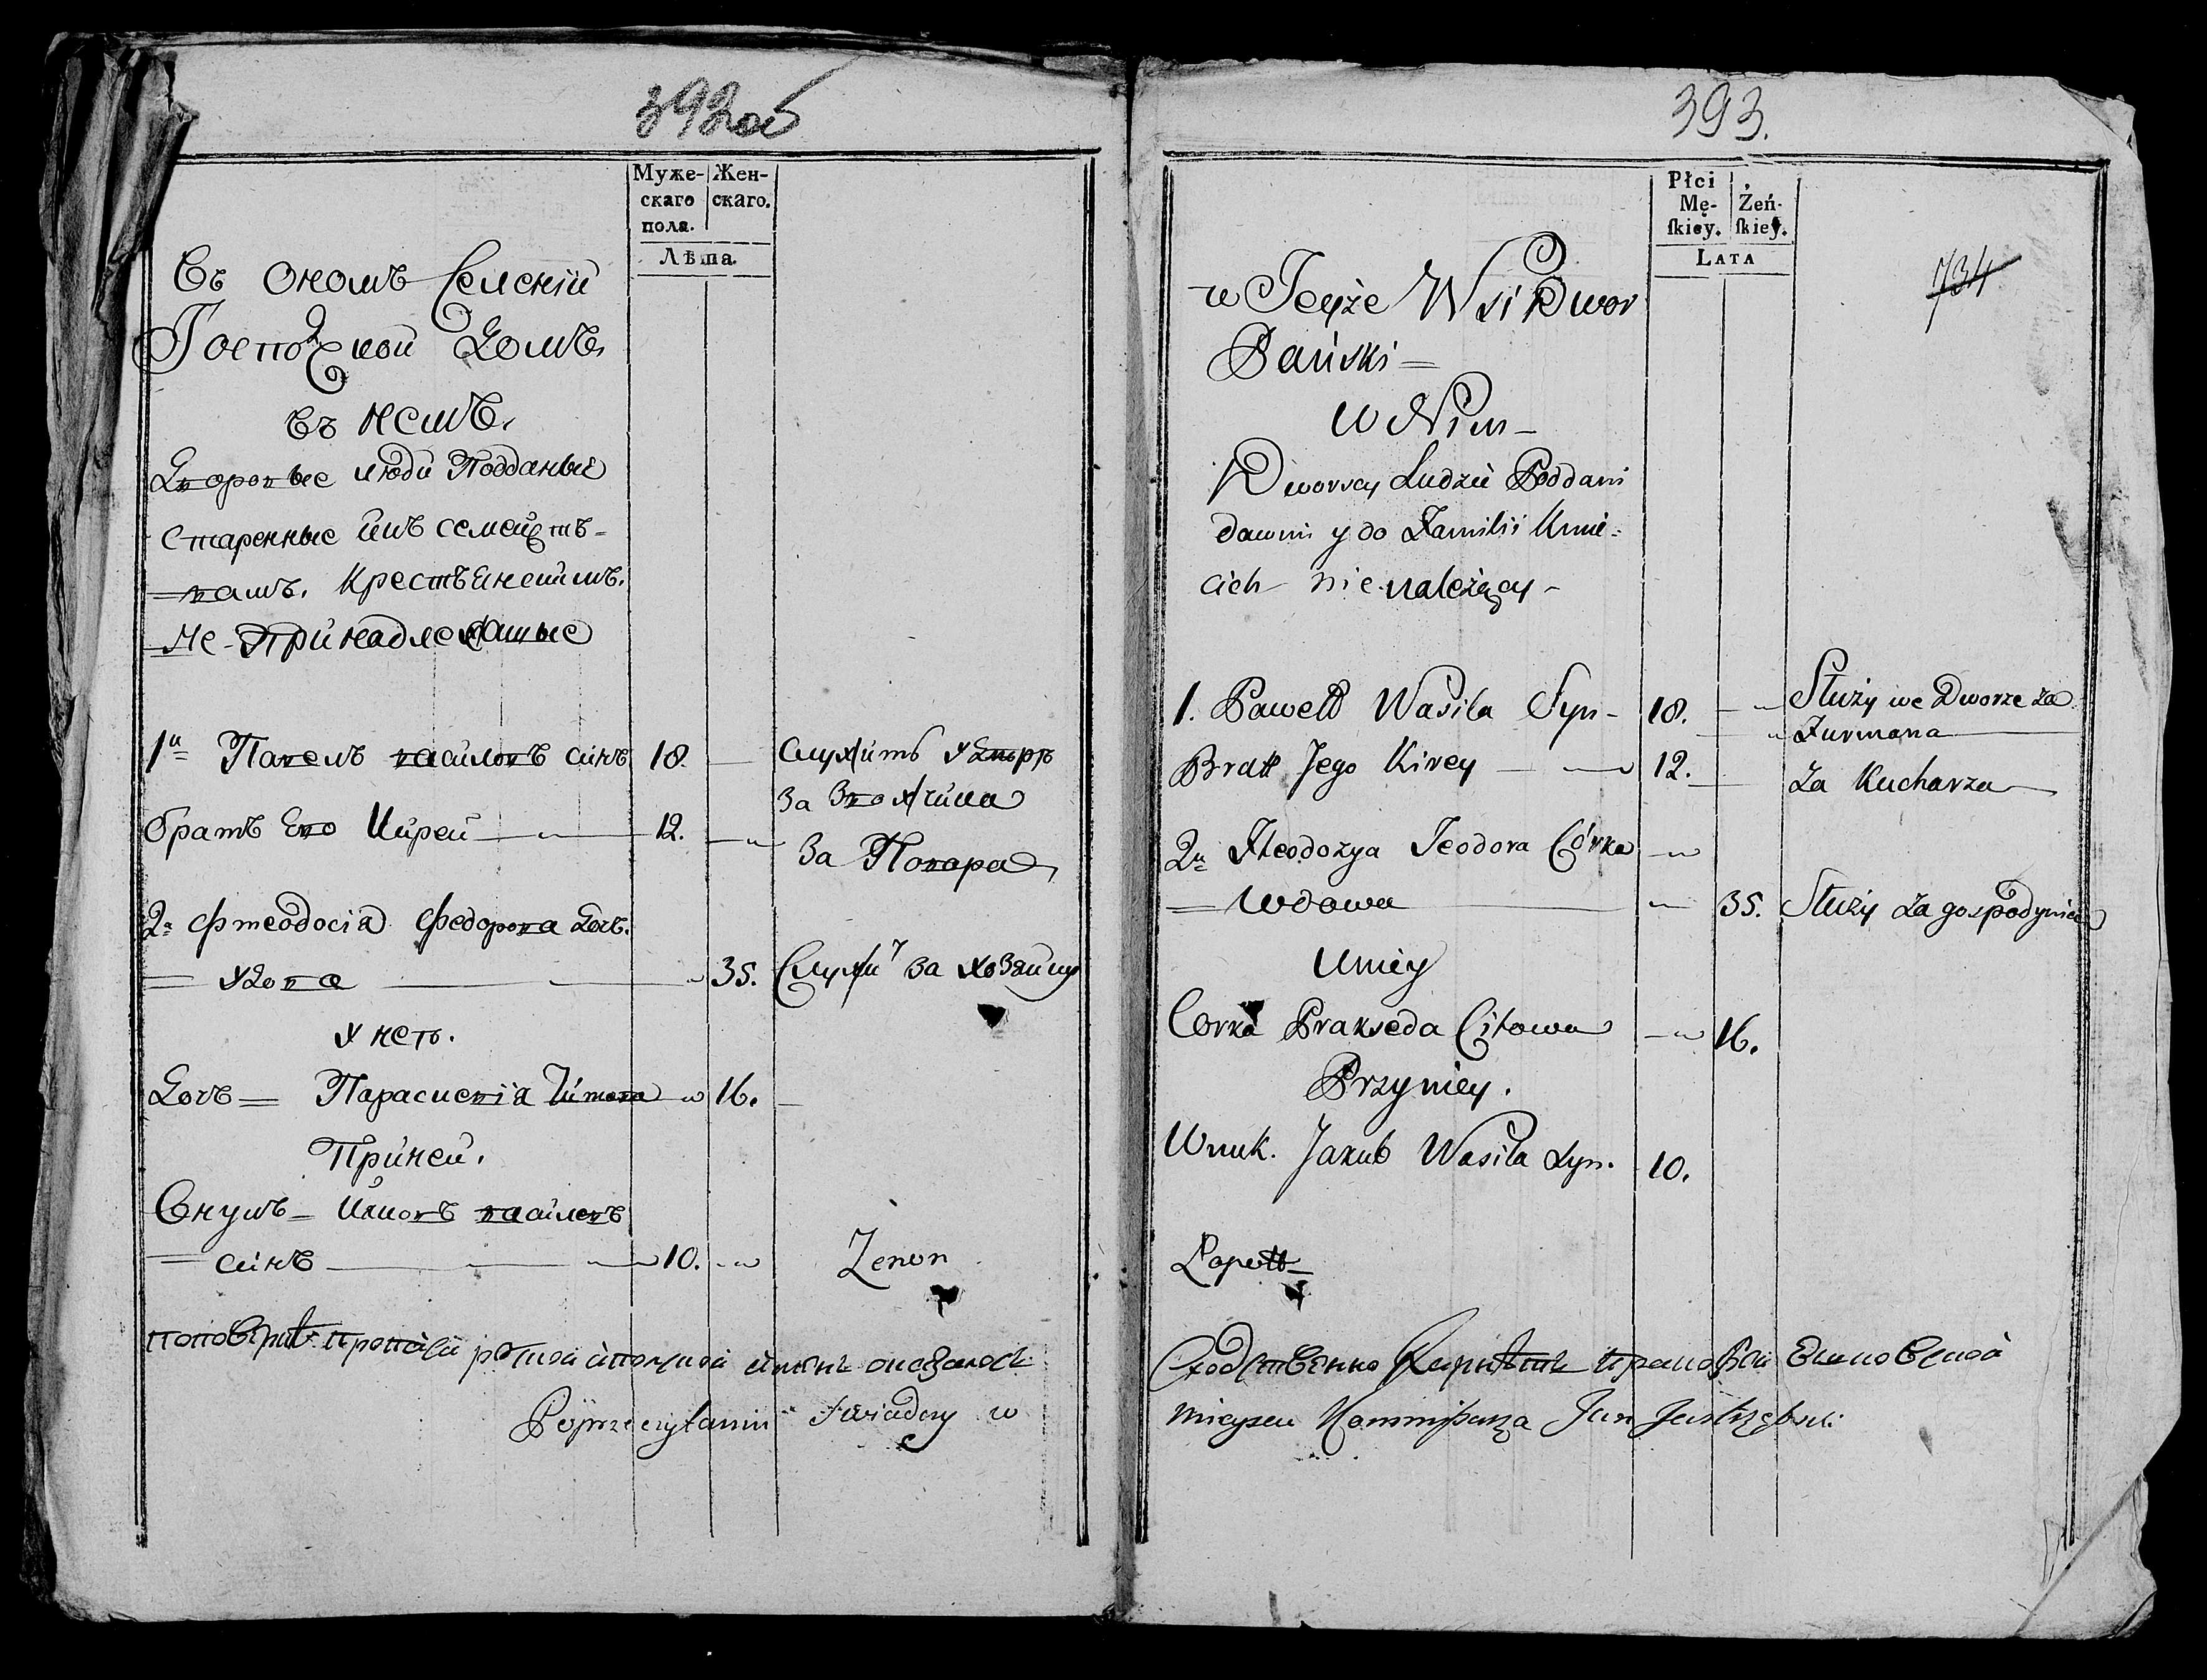 392об
Муже-
скаго
пола.
Жен-
скаго.
Лѣта.
Въ ономъ Селский
Господской Домъ.
въ немъ.
Дворовые люди Подданые
старенные ихъ семейств-
вамъ. Крестъянскимъ.
Не-Принадлежащые
1й Павелъ василовъ синъ 18.
служитъ у Дворѣ
За Возчика
братъ Его Кирей 12.
За Повара
2я Фтеодосія Федорова дочъ.
удова 35. Служи за хозяйку
у неть.
Дочъ Парасковія Титова 16.
Приней.
Внукъ Якковъ василевъ
синъ 10.
Zenon
повѣрилъ оказалось
Poprzeczytaniu świadczy w
393.
Płci
Mę-
skiey.
Żeń-
skiey.
LATA
734
w Teyże Wsi Dwor
Pański
W Nim
Dworscy Ludzie Poddani
dawni y do Familii Kmie-
cich nie należący
1. Paweł Wasila Syn 18. Służy we Dworze za
Furmana
Brat Jego Kirey 12. Za Kucharza
2a Fteodozya Teodora Córka
wdowa 35. Służy za gospodynią
Uniey
Corka Prakseda Citowa 16.
Przyniey.
Wnuk. Jakub Wasila Syn. 10.
Łopott
mieyscu Kommissarza Jan Jastrzębski